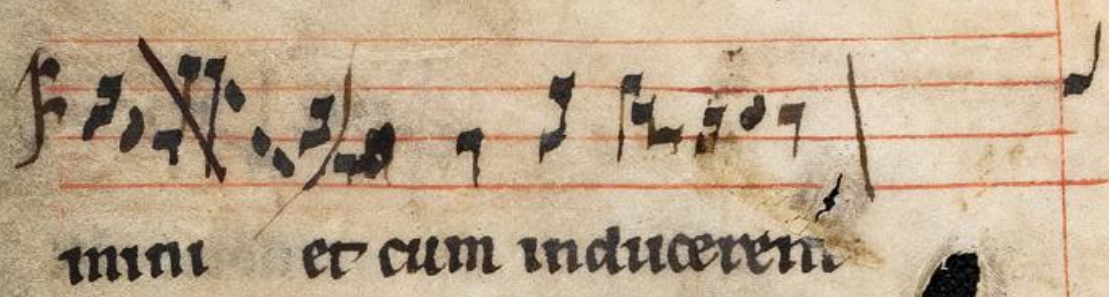 mini et cum inducerent